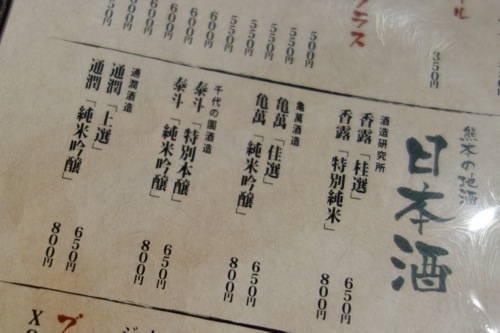 熊本の地酒
日本酒
酒造研究所
香露「桂選」 650円
香露「特別純米」 800円
亀萬酒造
亀萬「佳選」 650円
亀萬「純米吟醸」 800円
千代の園酒造
泰斗「特別本醸」 650円
泰斗「純米吟醸」 800円
通潤酒造
通潤「上選」 650円
通潤「純米吟醸」 800円
ール
350円
グラス
500円
550円
550円
550円
600円
600円
600円
600円